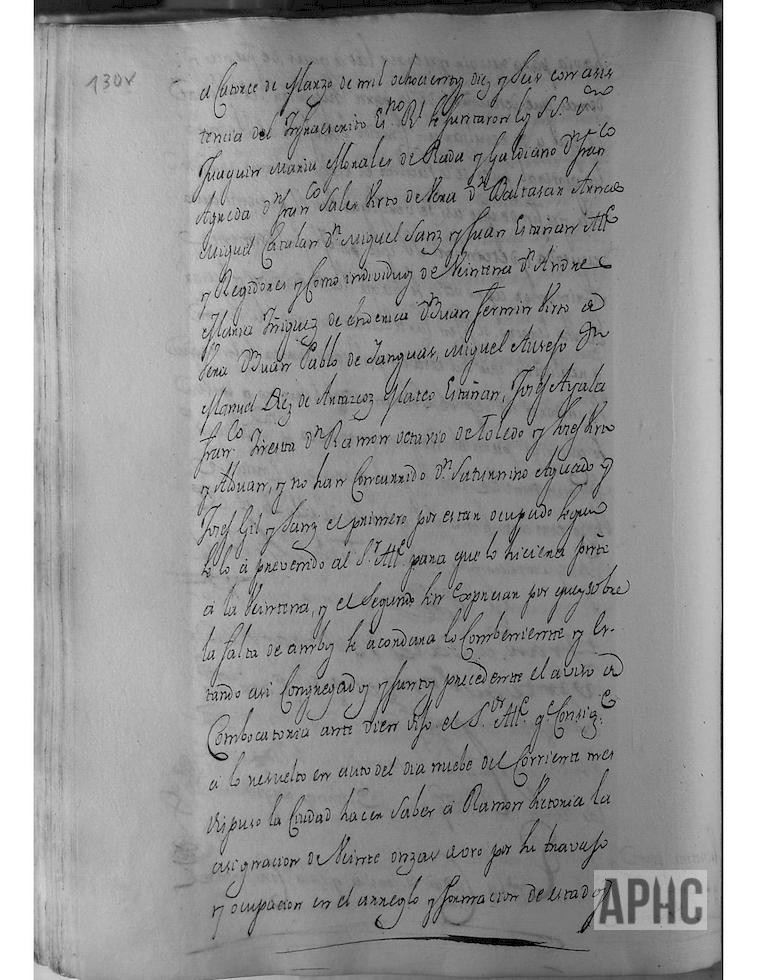 130v
a Catorce de Marzo de mil ochocientos diez y seis con asis
tencia del Infraescrito Esno. Rl. se juntaron los SS. Dn
Juaquin Maria Morales de Rada y Galdiano Dn. Franco
Agreda Dn. Franco Sales Virto de Vera Dn. Baltasar
Miguel Catalan Dn. Miguel Sanz y Juan Estañan Alle
y Regidores y Como individuos de Veintena Dn. Andres
Maria Iñiguez de Dn. Juan Fermin Virto de
Vera Dn. Juan Pablo de Tanguas, Miguel Dn
Manuel Diez de Antarcoz Mateo Estañan, Josef Ayala
Franco. Dn. Ramon octavio de Toledo y Josef Virto
y Alduan, y no han Concurrido Dn. Saturnino Aguado y
Josef Gil y Sanz el primero por estar ocupado segun
se lo a prevenido al Sr. Alle. para que lo hiciera
a la Veintena, y el Segundo sin Expresar por que, y sobre
la falta de ambos se acordara lo Combeniente y Es-
tando asi Congregados y juntos precedente el aviso de
Combocatoria ante Diem viso el Sor. Alle. qe. Consige.
a lo resuelto en auto del dia nuebe del Corriente mes
dispuso la Ciudad hacer Saber a Ramon Vitoria la
asignacion de Veinte onzas de oro por su travajo
y ocupacion en el arreglo y formacion de estados
APHC